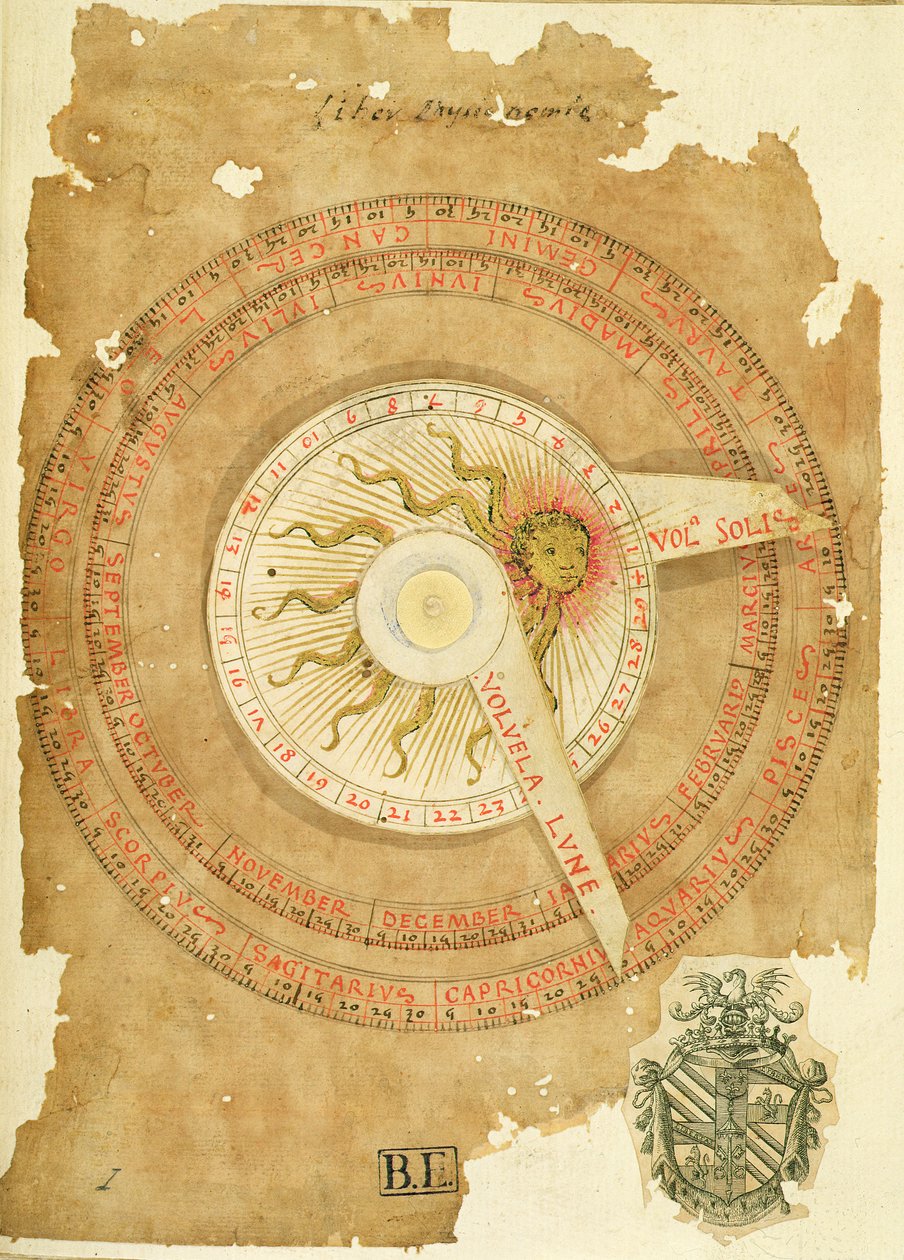 Liber Physionomie
GEMINI
TAVRVS
ARIES
PISCES
AQVARIVS
CAPRICORNIV
SAGITARIVS
SCORPIVS
LIBRA
VIRGO
LEO
CANCER
IVNIVS
MADIVS
APRILIS
MARCIVS
FEBRVARI9
IANVARIVS
DECEMBER
NOVEMBER
OCTVBER
SEPTEMBER
AVGVSTVS
IVLIVS
1 2 3 4 5 6 7 8 9 10 11 12 13 14 15 16 17 18 19 20 21 22 23 26 27 28 29
VOLᵃ SOLIS
VOLVELA. LVNE.
B.E.
1